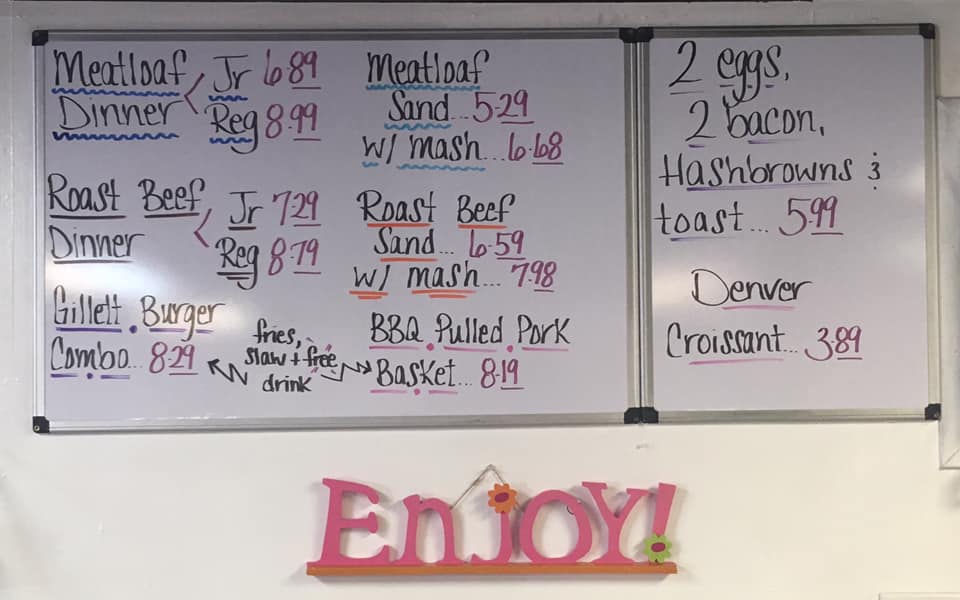 Meatloaf Jr 6.89
Dinner Reg 8.99
Roast Beef Jr 7.29
Dinner Reg 8.79
Gillett Burger
Combo... 8.29
fries,
slaw + free
drink
Meatloaf
Sand... 5.29
w/ mash... 6.68
Roast Beef
Sand... 6.59
w/ mash... 7.98
BBQ Pulled Pork
Basket... 8.19
2 eggs,
2 bacon,
Hashbrowns &
toast... 5.99
Denver
Croissant... 3.89
Enjoy!